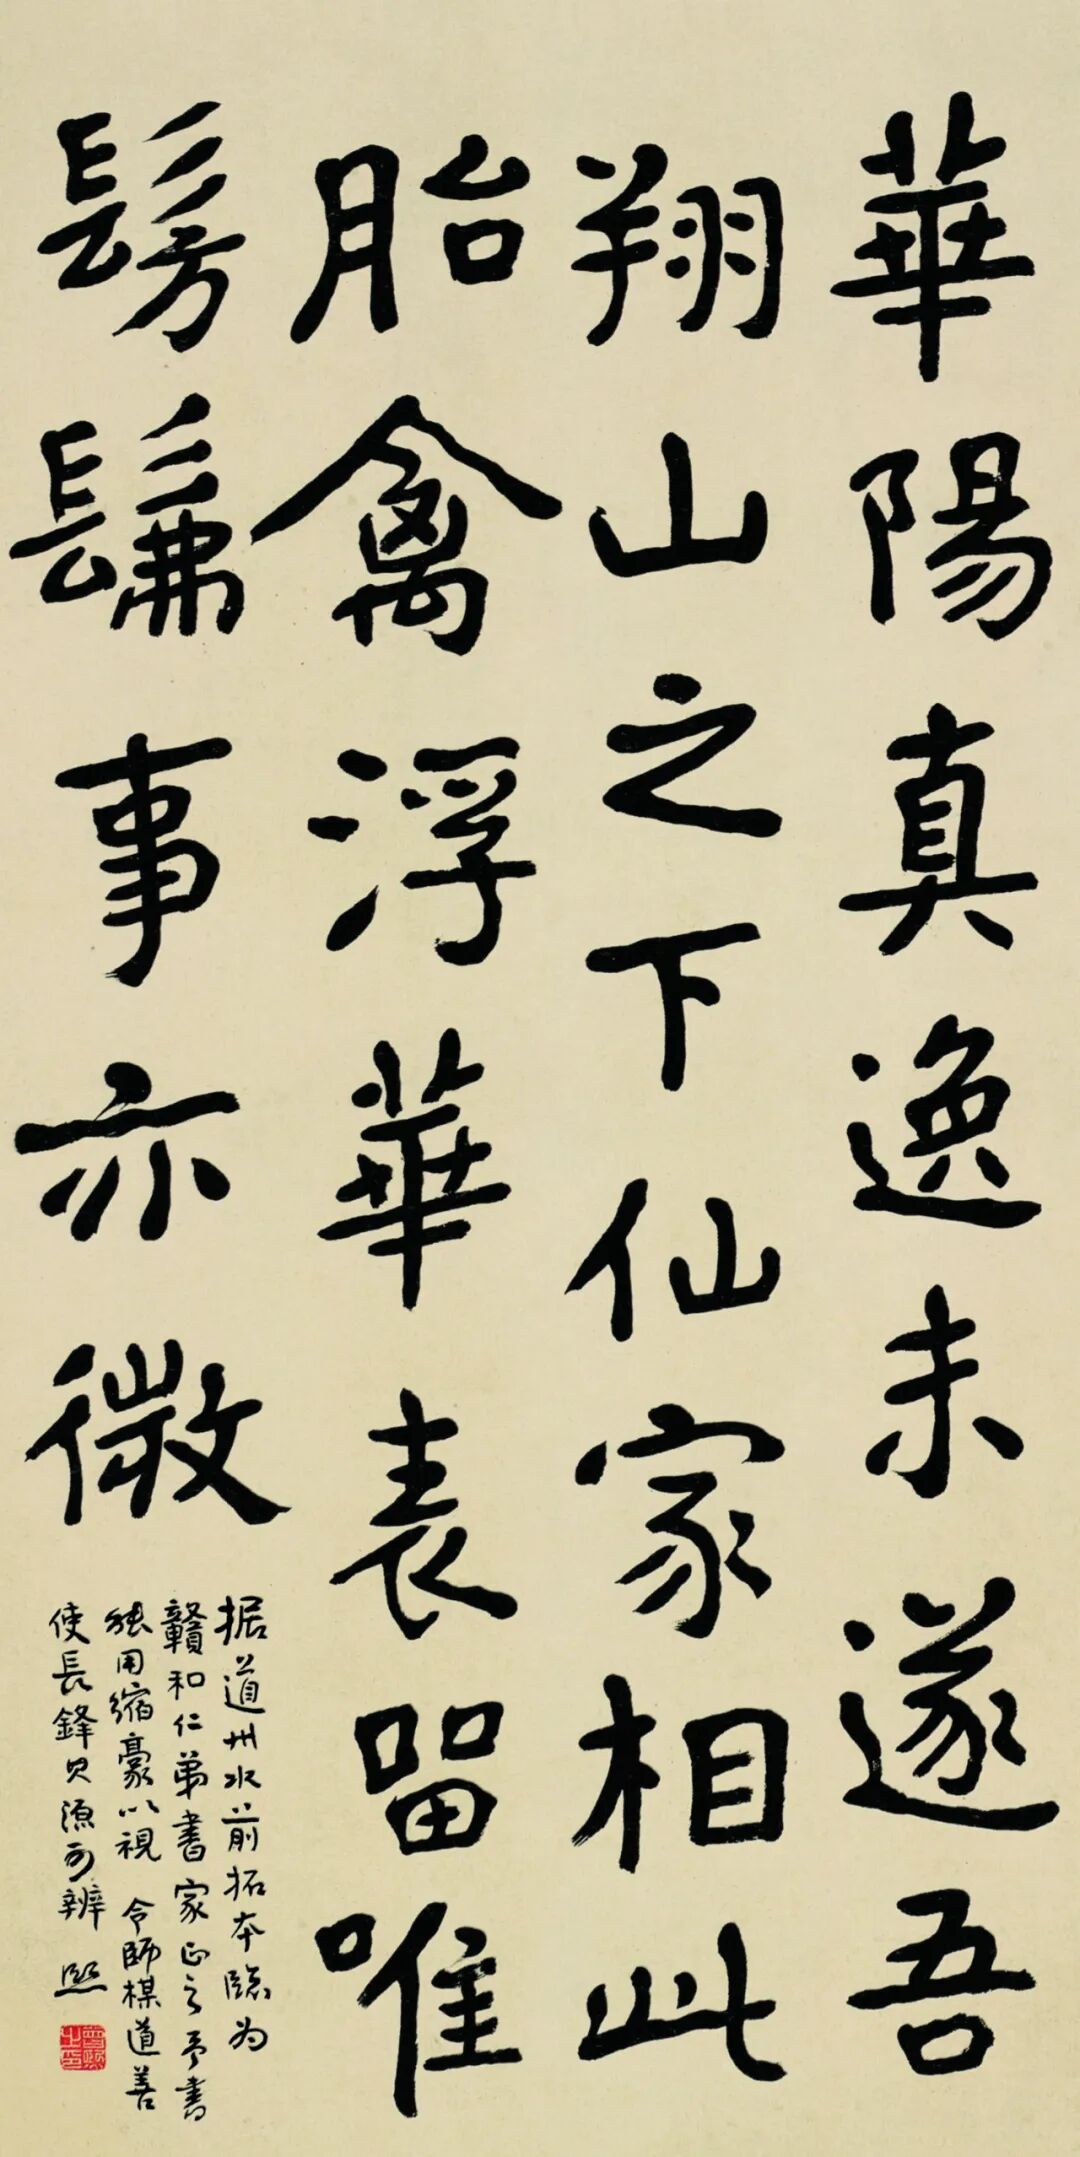 華陽真逸未遂吾
翔山之下仙家相此
胎禽浮華表留唯
髣髴事亦微
据道州水前拓本臨为
贛和仁弟書家正之予書
用縮豪以視 令師楳道善
使長鋒 可辨 熙